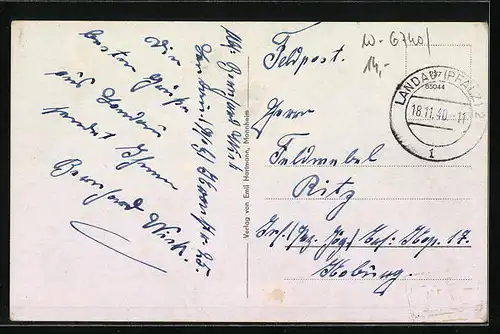 Die
besten Grüße
aus Landau
sendet Ihnen
Bernhard Wick.
Abs. Bernhard Wick
Landau (Pfalz)
Verlag von Emil Hartmann, Mannheim
Feldpost.
W-6740/
14,-
LANDAU (PFALZ) 2
18.11.40.-11
1
Herrn
Feldwebel
Ritz
Ers. Komp. 17.
Koburg.